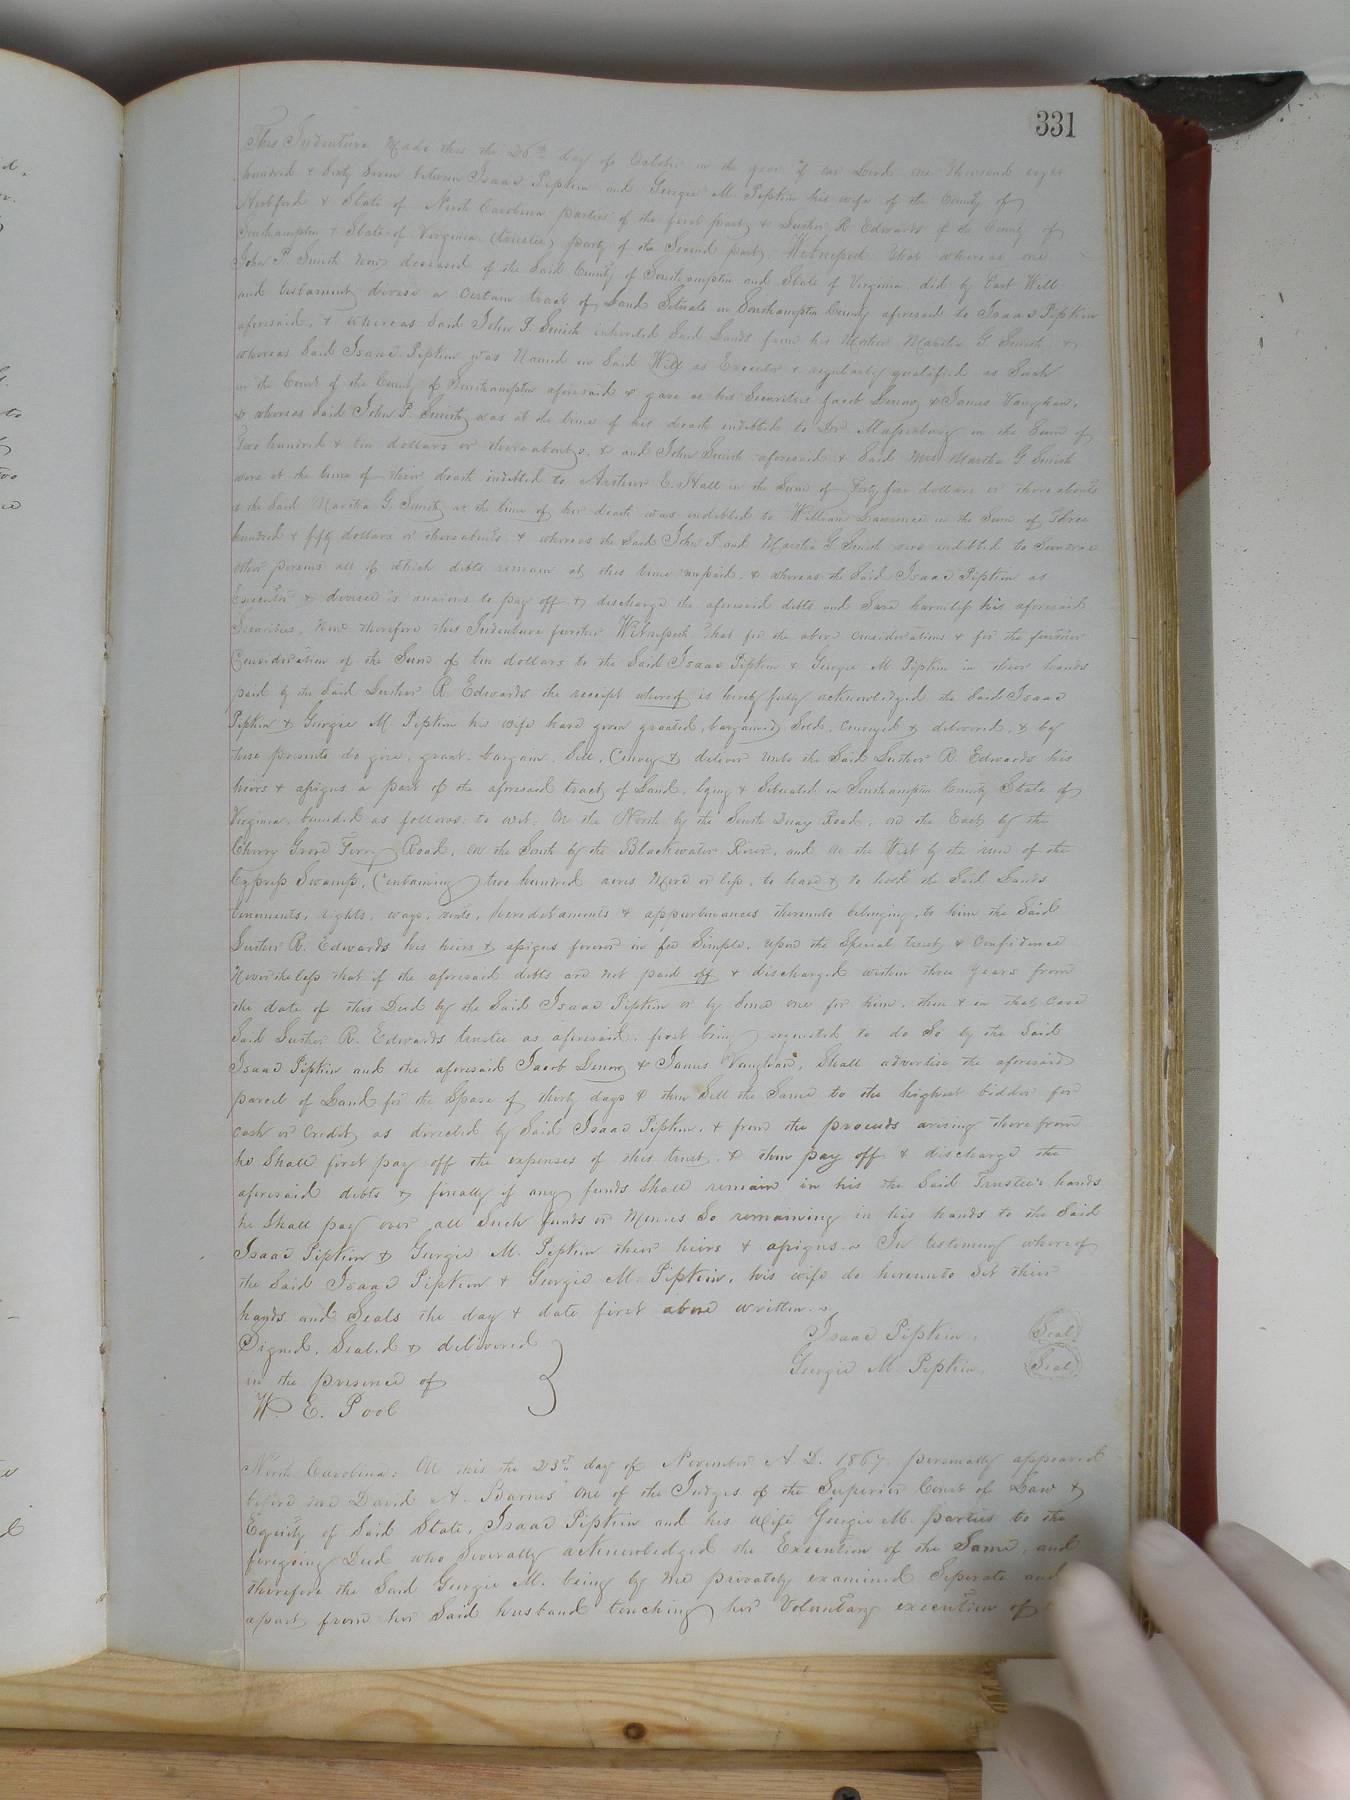 331
This Indenture Made this the 26th day of October in the year of our Lord one thousand eight
hundred & Sixty Seven between Isaac Pipkin and Georgie M. Pipkin his wife of the County of
Hertford & State of North Carolina parties of the first part, & Luther R. Edwards of the County of
Southampton & State of Virginia (trustee) party of the Second part, Witnesseth that whereas one
John P. Smith now deceased of the Said County of Southampton and State of Virginia did by Last Will
and testament devise a certain tract of Land Situate in Southampton County aforesaid to Isaac Pipkin
aforesaid, & whereas Said John P. Smith inherited Said Lands from his Mother Martha G. Smith, &
whereas Said Isaac Pipkin was Named in Said Will as Executor & regularly qualified as Such
in the Court of the County of Southampton aforesaid & gave as his Securities Jacob & James Vaughan,
& whereas Said John P. Smith was at the time of his death indebted to Dr. in the Sum of
Two hundred & ten dollars or thereabouts, & and John Smith aforesaid & Said Mrs Martha G. Smith
were at the time of their death indebted to Arthur E. Hall in the Sum of forty five dollars or thereabouts
& the Said Martha G. Smith at the time of her death was indebted to William Lawrence in the Sum of Three
hundred & fifty dollars or thereabouts, & whereas the Said John P. and Martha G. Smith were indebted to Sundrie
other persons all of which debts remain at this time unpaid, & whereas the Said Isaac Pipkin as
Executor & devisee is anxious to pay off & discharge the aforesaid debts and Save harmless his aforesaid
Securities, Now therefore this Indenture further Witnesseth that for the above considerations & for the further
Consideration of the Sum of ten dollars to the Said Isaac Pipkin & Georgie M. Pipkin in their hands
paid by the Said Luther R. Edwards the receipt whereof is hereby fully acknowledged the Said Isaac
Pipkin & Georgie M. Pipkin his wife have given granted, bargained, Sold, conveyed & delivered, & by
these presents do give, grant, bargain, Sell, Convey & deliver unto the Said Luther R. Edwards his
heirs & assigns a part of the aforesaid tract of Land, lying & Situated in Southampton County State of
Virginia, bounded as follows: to wit: On the North by the South Quay Road, on the East by the
Cherry Grove Ferry Road, on the South by the Blackwater River, and on the West by the run of the
Cypress Swamp, Containing two hundred acres More or less, to have & to hold the Said Lands
tenements, rights, ways, rents, hereditaments & appurtenances thereunto belonging, to him the Said
Luther R. Edwards his heirs & assigns forever in fee Simple, upon the Special trust & Confidence
Nevertheless that if the aforesaid debts are not paid off & discharged within three years from
the date of this Deed by the Said Isaac Pipkin or by Some one for him, then & in that case
Said Luther R. Edwards trustee as aforesaid, first being requested to do So by the Said
Isaac Pipkin and the aforesaid Jacob & James Vaughan, Shall advertise the aforesaid
parcel of Land for the Space of thirty days & then Sell the Same to the highest bidder for
cash or credit, as directed by Said Isaac Pipkin, & from the proceeds arising therefrom
he Shall first pay off the expenses of this trust, & then pay off & discharge the
aforesaid debts & finally if any funds Shall remain in his the Said Trustee's hands
he Shall pay over all Such funds or Monies So remaining in his hands to the Said
Isaac Pipkin & Georgie M. Pipkin their heirs & assigns. In testimony whereof
the Said Isaac Pipkin & Georgie M. Pipkin, his wife do hereunto Set their
hands and Seals the day & date first above written.
Signed, Sealed & delivered
in the presence of
W. E. Pool
Isaac Pipkin. Seal
Georgie M. Pipkin. Seal
North Carolina: On this the 23rd day of November A. D. 1867. personally appeared
before me David A. Barnes One of the Judges of the Superior Court of Law &
Equity of Said State, Isaac Pipkin and his wife Georgie M. parties to the
foregoing Deed who Severally acknowledged the Execution of the Same, and
therefore the Said Georgie M. being by me privately examined Seperate and
apart from her Said husband touching her Voluntary execution of